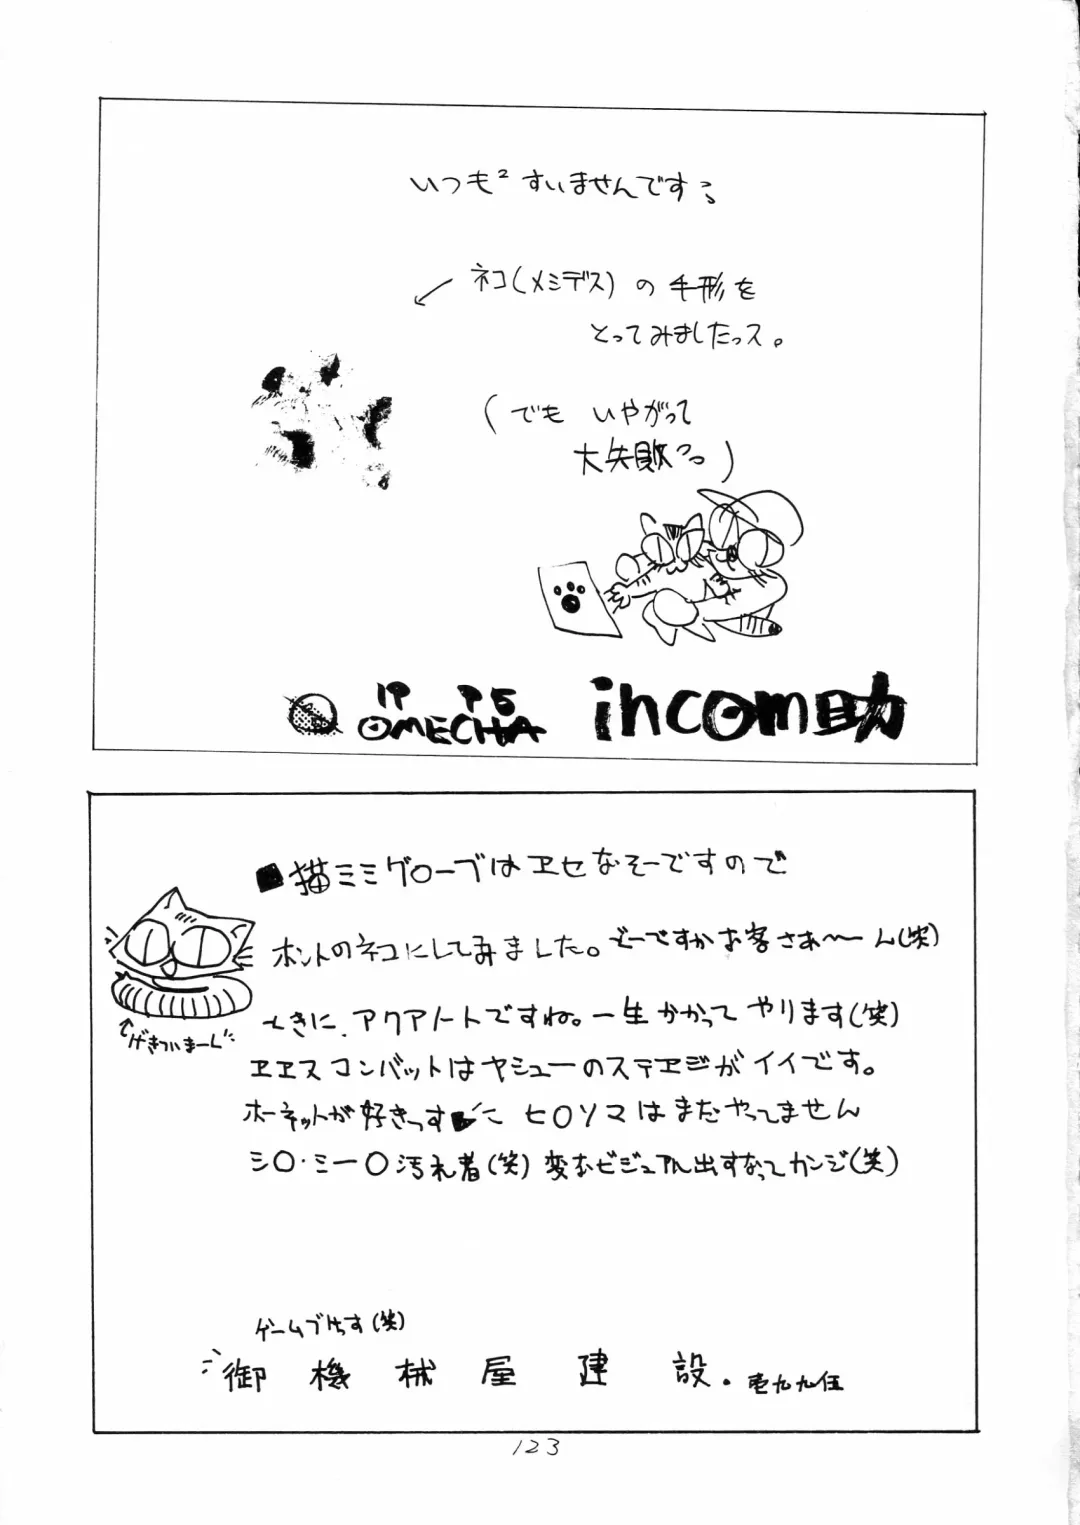 いつも² すいませんです。
ネコ(メミデス)の手形を
とってみましたっス。
(でも いやがって
大失敗っ)
19 95
OMECHA incom助
■猫ミミグローブはヱセなそーですので
ホントのネコにしてみました。どーですかお客さぁ〜〜ん(笑)
ときに、アクアノートですね。一生かかってやります(笑)
ヱヱスコンバットはヤシューのステヱジがイイです。
ホーネットが好きっす ヒロソマはまだやってません
シ〇・ミー〇汚れ者(笑) 変なビジュアル出すなってカンジ(笑)
げきついまーく
ゲームブれす(笑)
御機械屋建設. 壱九九伍
123